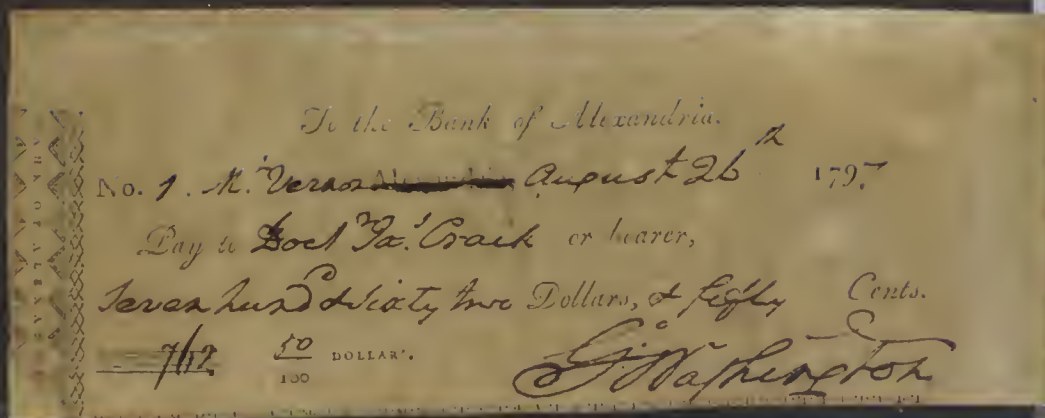 To the Bank of Alexandria.
No. 1. Mt. Vernon August 26th 1797
Pay to Doctr Jas. Craik or bearer,
Seven hund & Sixty two Dollars, & fifty Cents.
762 50/100 DOLLARS.
Go. Washington